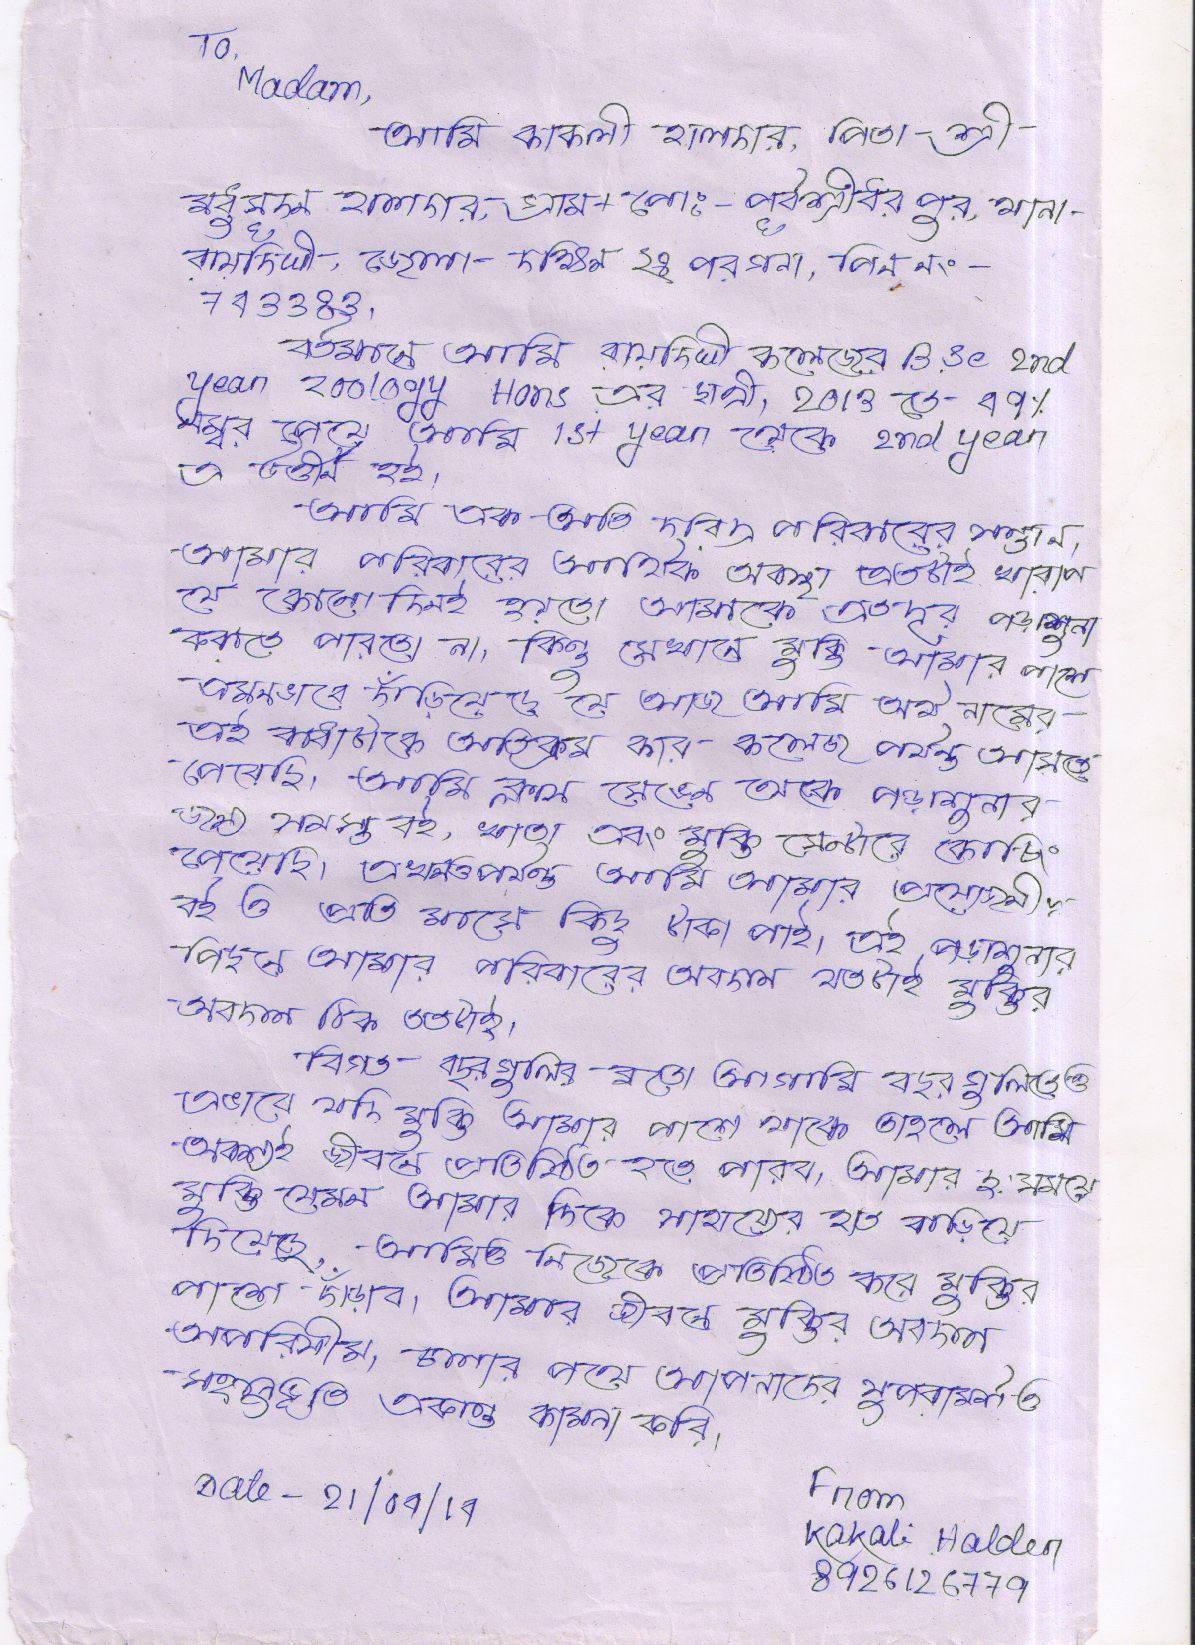 To,
Madam,
আমি কাকলী হালদার, পিতা - শ্রী
মধুসূদন হালদার, গ্রাম + পোঃ - পূর্বশ্রীধরপুর, থানা -
রায়দিঘী, জেলা - দক্ষিণ ২৪ পরগনা, পিন নং -
743383.
বর্তমানে আমি রায়দিঘী কলেজের B.Sc 2nd
year Zoology Hons এর ছাত্রী, 2013 তে 47%
নম্বর পেয়ে আমি 1st year থেকে 2nd year
এ উত্তীর্ন হই।
আমি এক অতি দরিদ্র পরিবারের সন্তান,
আমার পরিবারের আর্থিক অবস্থা এতটাই খারাপ
যে কোনো দিনই হয়তো আমাকে এতদূর পড়াশুনা
করাতে পারতো না, কিন্তু সেখানে মুক্তি আমার পাশে
এমনভাবে দাঁড়িয়েছে যে আজ আমি অর্থ নামের
এই বাধাটাকে অতিক্রম করে কলেজ পর্যন্ত আসতে
পেরেছি। আমি ক্লাস সেভেন থেকে পড়াশুনার
জন্য সমস্ত বই, খাতা এবং মুক্তি সেন্টারে কোচিং
পেয়েছি। এখনও পর্যন্ত আমি আমার প্রয়োজনীয়
বই ও প্রতি মাসে কিছু টাকা পাই। এই পড়াশুনার
পিছনে আমার পরিবারের অবদান যতটাই মুক্তির
অবদান ঠিক ততটাই।
বিগত বছরগুলির মতো আগামি বছরগুলিতেও
এভাবে যদি মুক্তি আমার পাশে থাকে তাহলে আমি
অবশ্যই জীবনে প্রতিষ্ঠিত হতে পারব, আমার দুঃসময়ে
মুক্তি যেমন আমার দিকে সাহায্যের হাত বাড়িয়ে
দিয়েছে, আমিও নিজেকে প্রতিষ্ঠিত করে মুক্তির
পাশে দাঁড়াব। আমার জীবনে মুক্তির অবদান
অপরিসীম, চলার পথে আপনাদের সুপরামর্শ ও
একান্ত কামনা করি।
Date - 21/04/14
From
Kakali Halder
8926126779